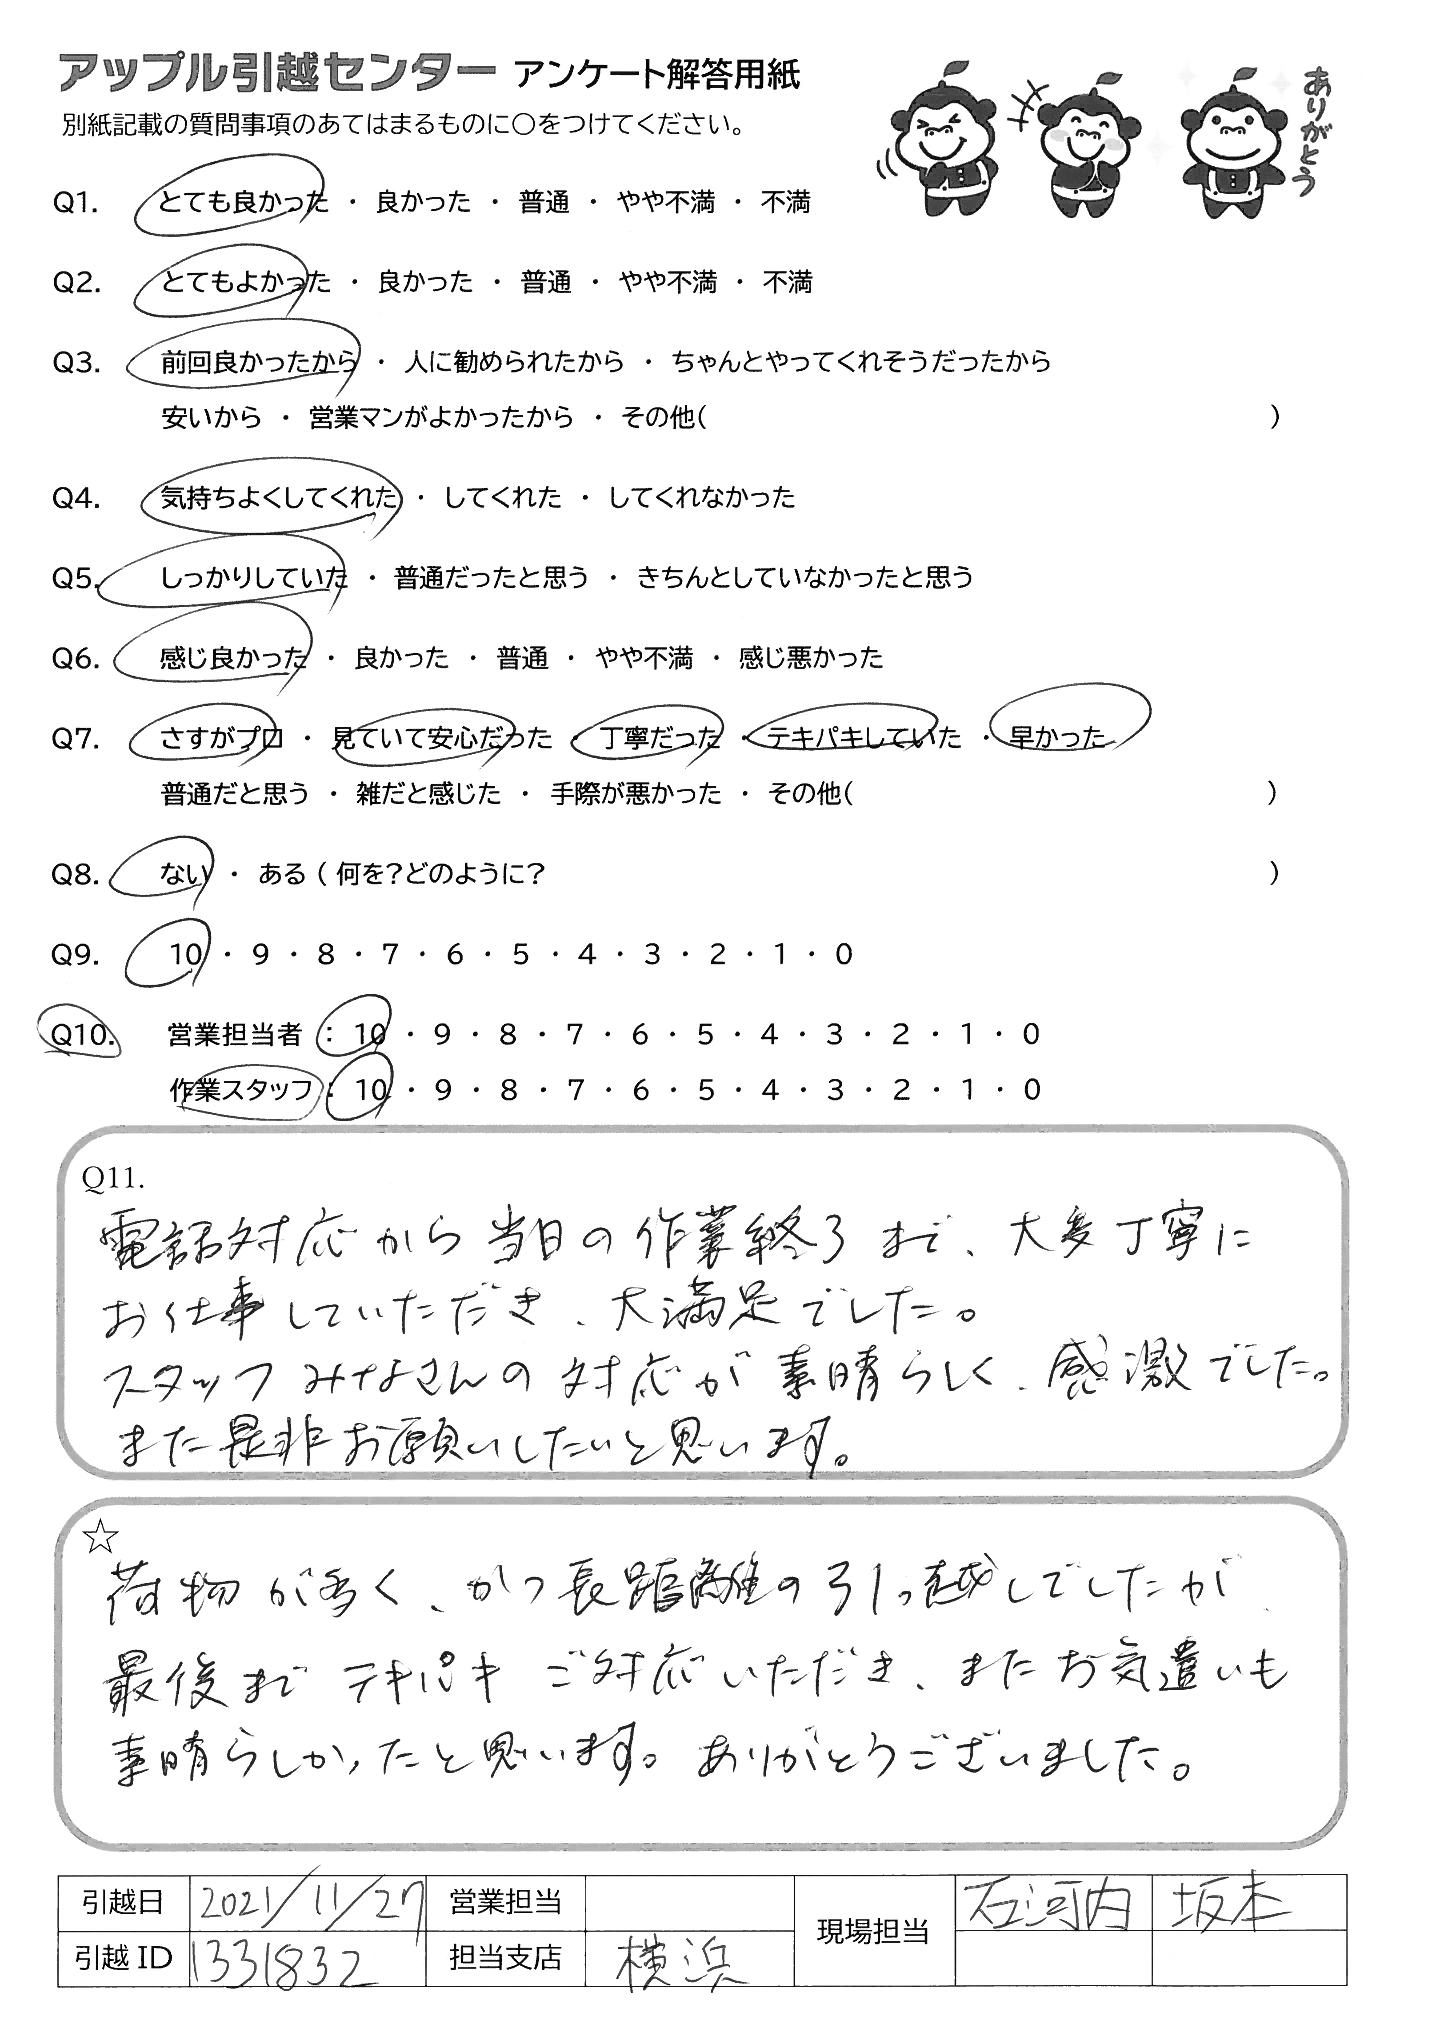 アップル引越センター アンケート解答用紙
別紙記載の質問事項のあてはまるものに○をつけてください。
ありがとう
Q1. とても良かった ・ 良かった ・ 普通 ・ やや不満 ・ 不満
Q2. とてもよかった ・ 良かった ・ 普通 ・ やや不満 ・ 不満
Q3. 前回良かったから ・ 人に勧められたから ・ ちゃんとやってくれそうだったから
安いから ・ 営業マンがよかったから ・ その他( )
Q4. 気持ちよくしてくれた ・ してくれた ・ してくれなかった
Q5. しっかりしていた ・ 普通だったと思う ・ きちんとしていなかったと思う
Q6. 感じ良かった ・ 良かった ・ 普通 ・ やや不満 ・ 感じ悪かった
Q7. さすがプロ ・ 見ていて安心だった ・ 丁寧だった ・ テキパキしていた ・ 早かった
普通だと思う ・ 雑だと感じた ・ 手際が悪かった ・ その他( )
Q8. ない ・ ある ( 何を?どのように? )
Q9. 10 ・ 9 ・ 8 ・ 7 ・ 6 ・ 5 ・ 4 ・ 3 ・ 2 ・ 1 ・ 0
Q10. 営業担当者 : 10 ・ 9 ・ 8 ・ 7 ・ 6 ・ 5 ・ 4 ・ 3 ・ 2 ・ 1 ・ 0
作業スタッフ : 10 ・ 9 ・ 8 ・ 7 ・ 6 ・ 5 ・ 4 ・ 3 ・ 2 ・ 1 ・ 0
Q11.
電話対応から当日の作業終了まで、大変丁寧に
お仕事していただき、大満足でした。
スタッフみなさんの対応が素晴らしく、感激でした。
また是非お願いしたいと思います。
☆
荷物が多く、かつ長距離の引っ越しでしたが、
最後までテキパキご対応いただき、またお気遣いも
素晴らしかったと思います。ありがとうございました。
引越日 2021/11/27 営業担当 現場担当 石河内 坂本
引越 ID 1331832 担当支店 横浜